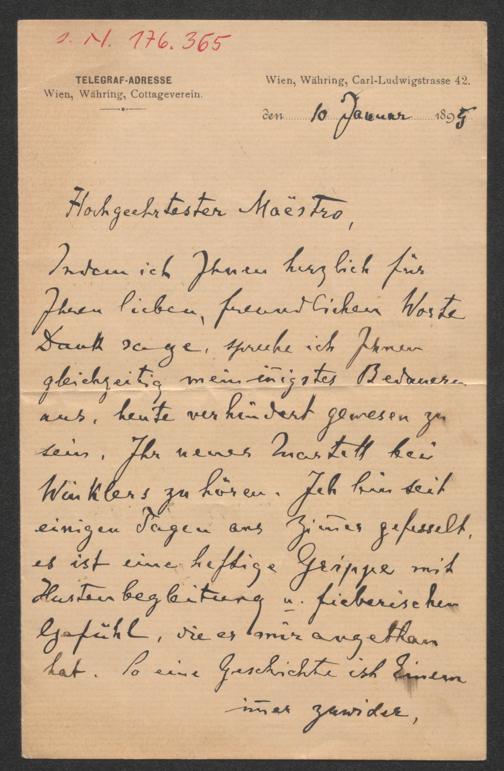 J. N. 176.365
TELEGRAF-ADRESSE
Wien, Währing, Cottageverein.
Wien, Währing, Carl-Ludwigstrasse 42.
den 10 Januar 1895
Hochgeehrtester Maëstro,
Indem ich Ihnen herzlich für
Ihren lieben, freundlichen Worte
Dank sage, spreche ich Ihnen
gleichzeitig mein iñigstes Bedauern
aus, heute verhindert gewesen zu
sein, Ihr neues Quartett bei
Winklers zu hören. Ich bin seit
einigen Tagen ans Zim̃er gefesselt,
es ist eine heftige Grippe mit
Hustenbegleitung u. fieberischen
Gefühl, die es mir angethan
hat. So eine Geschichte ist Einem
im̃er zuwider,